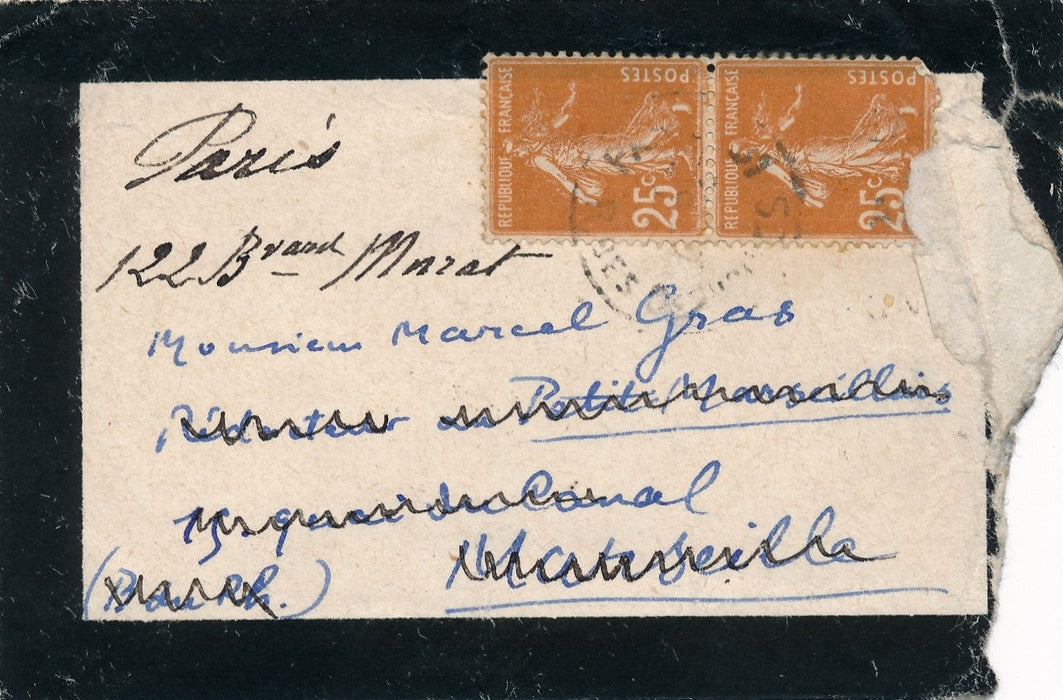 REPUBLIQUE FRANÇAISE POSTES 25c
REPUBLIQUE FRANÇAISE POSTES 25c
Paris
122 Bvard Murat
Monsieur Marcel Gras
Rédacteur au Petit Marseillais
15 quai du Canal
Marseille
(B. du Rh.)